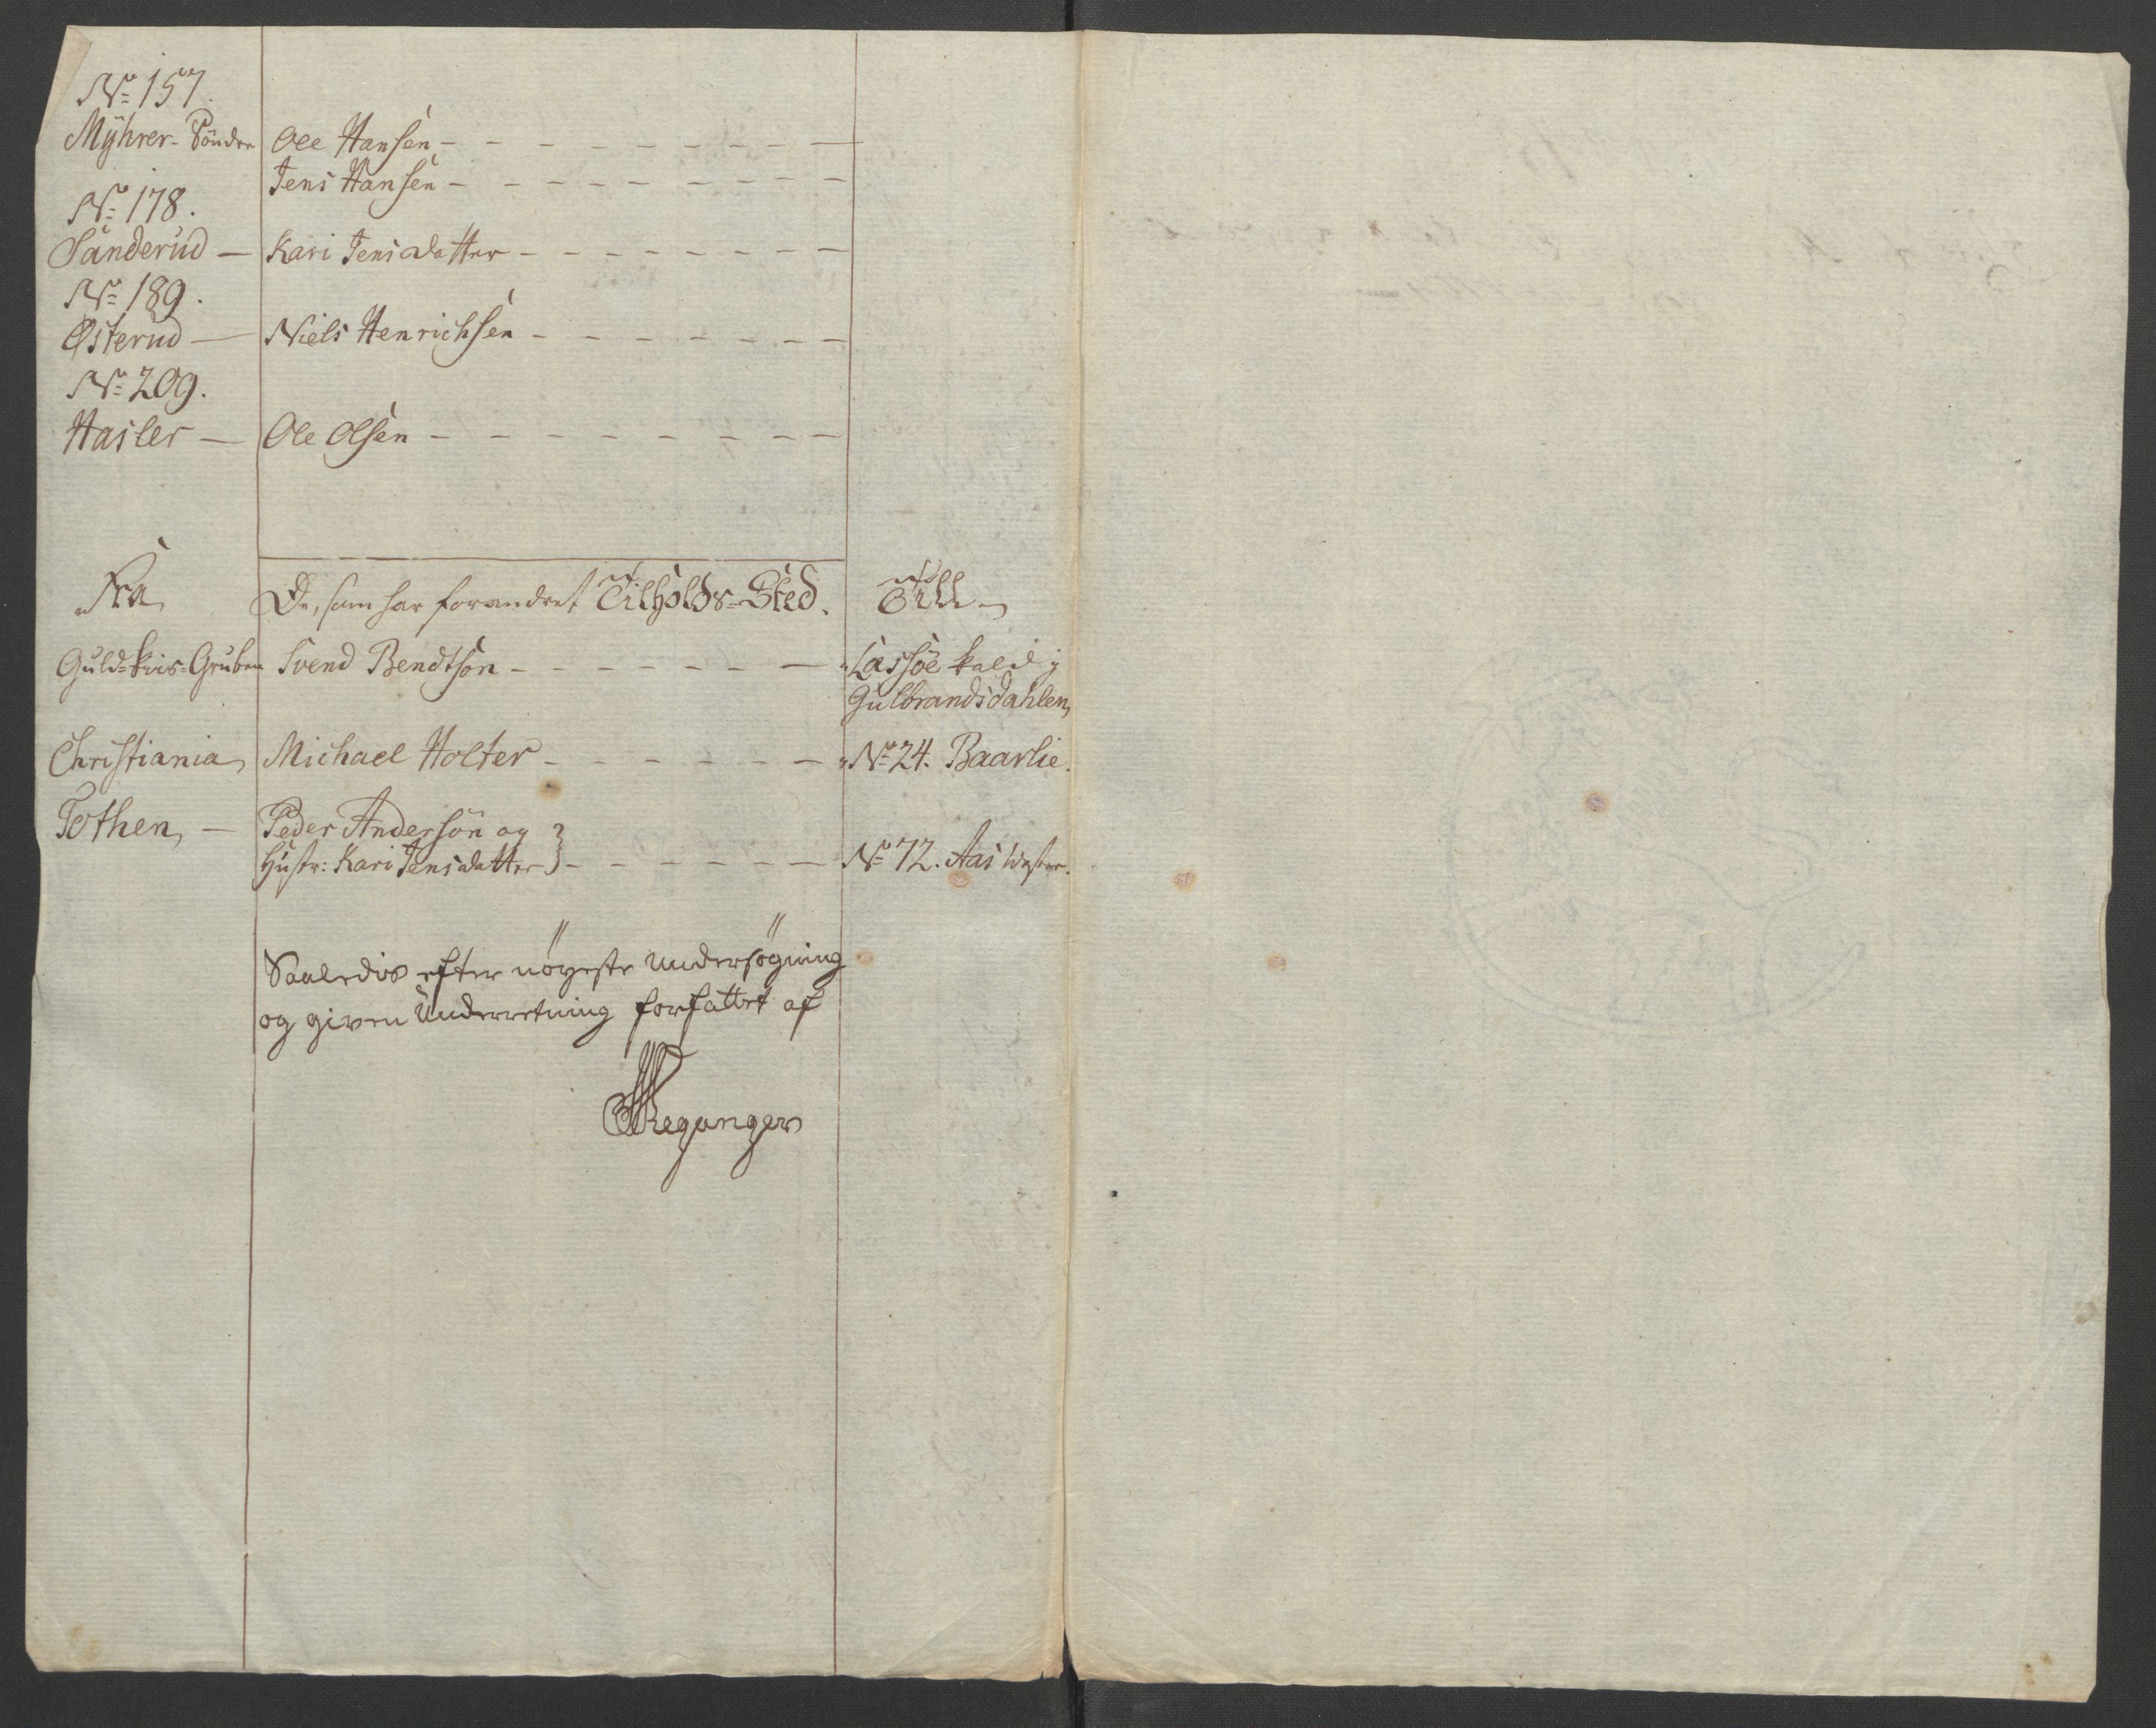 No 157.
Myhrer-Söndre Ole Hansen
Jens Hansen
No 178.
Sanderud Kari Jensdatter
No 189.
Østerud Niels Henrichsen
No 209.
Hasler Ole Olsen
Fra De, som har forandret Tilholds-Sted. Till
Guld-kiis-Gruben Svend Bendtsön Læssøe kald j
Gulbrandsdahlen,
Christiania Michael Holter No 24. Baarlie.
Tothen, Peder Andersön og
Hustr: Kari Jensdatter } No 72. Aas Westre.
Saaledis efter nöyeste Undersögning
og given Underretning forfattet af